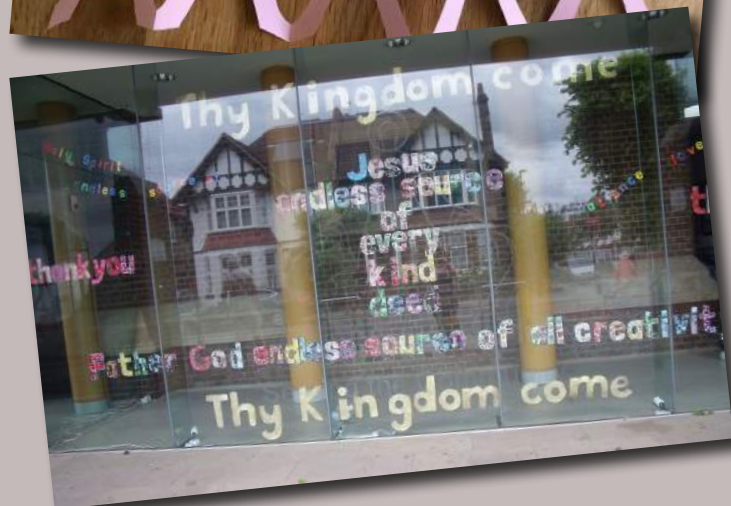 Thy Kingdom come
Holy Spirit
endless
Jesus
endless source
of
every
kind
deed
love
thank you
Father God endless source of all creativi
Thy Kingdom come